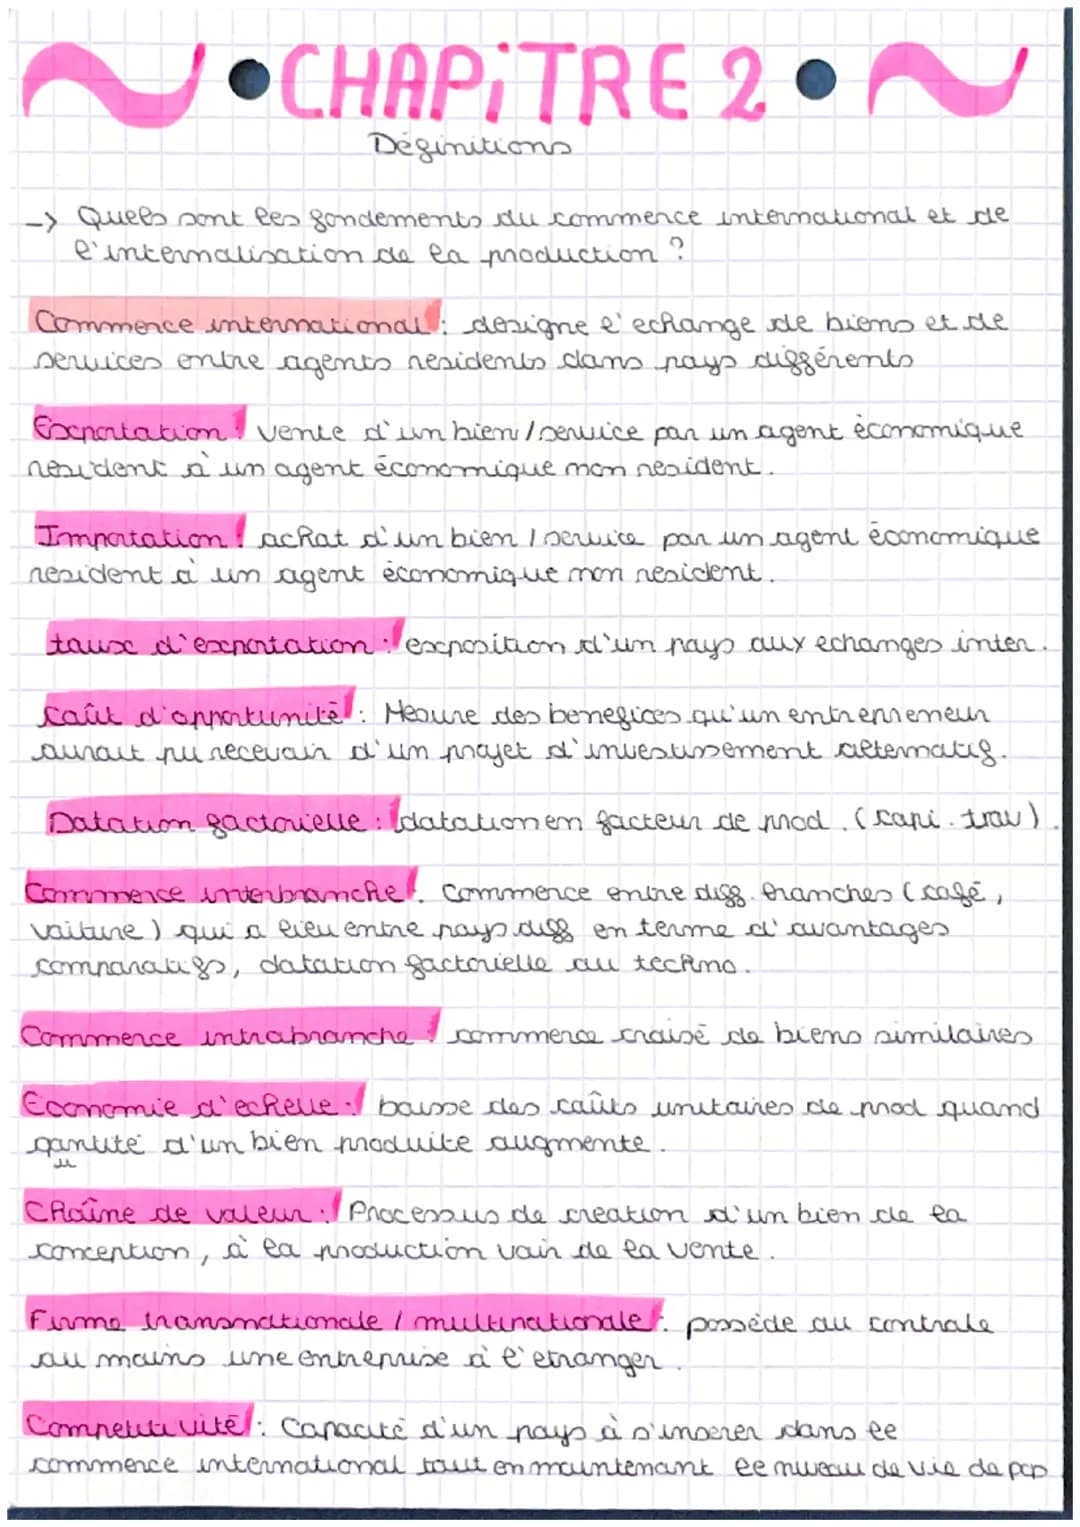 • CHAPiTRE 2 •
Définitions
-> Quels sont les fondements du commerce international et de
l'internalisation de la production ?
Commerce international : designe l'echange de biens et de
services entre agents residents dans pays différents
Exportation : vente d'un bien / service par un agent économique
resident à un agent économique non resident.
Importation : achat d'un bien / service par un agent économique
resident à un agent économique non resident.
taux d'exportation : exposition d'un pays aux echanges inter.
Coût d'opportunité : Mesure des benefices qu'un entrepreneur
aurait pu recevoir d'un projet d'investissement alternatif.
Dotation factorielle : dotation en facteur de prod. (capi. trav).
Commerce interbranche : Commerce entre diff. branches (café,
voiture) qui a lieu entre pays diff en terme d'avantages
comparatifs, dotation factorielle ou techno.
Commerce intrabranche : commerce croisé de biens similaires
Economie d'echelle : baisse des coûts unitaires de prod quand
qantité d'un bien produite augmente.
u
Chaîne de valeur : Processus de creation d'un bien de la
conception, à la production voir de la vente.
Firme transnationale / multinationale : possède ou controle
au moins une entreprise à l'etranger.
Competitivité : Capacité d'un pays à s'inserer dans le
commerce international tout en maintenant le niveau de vie de pop